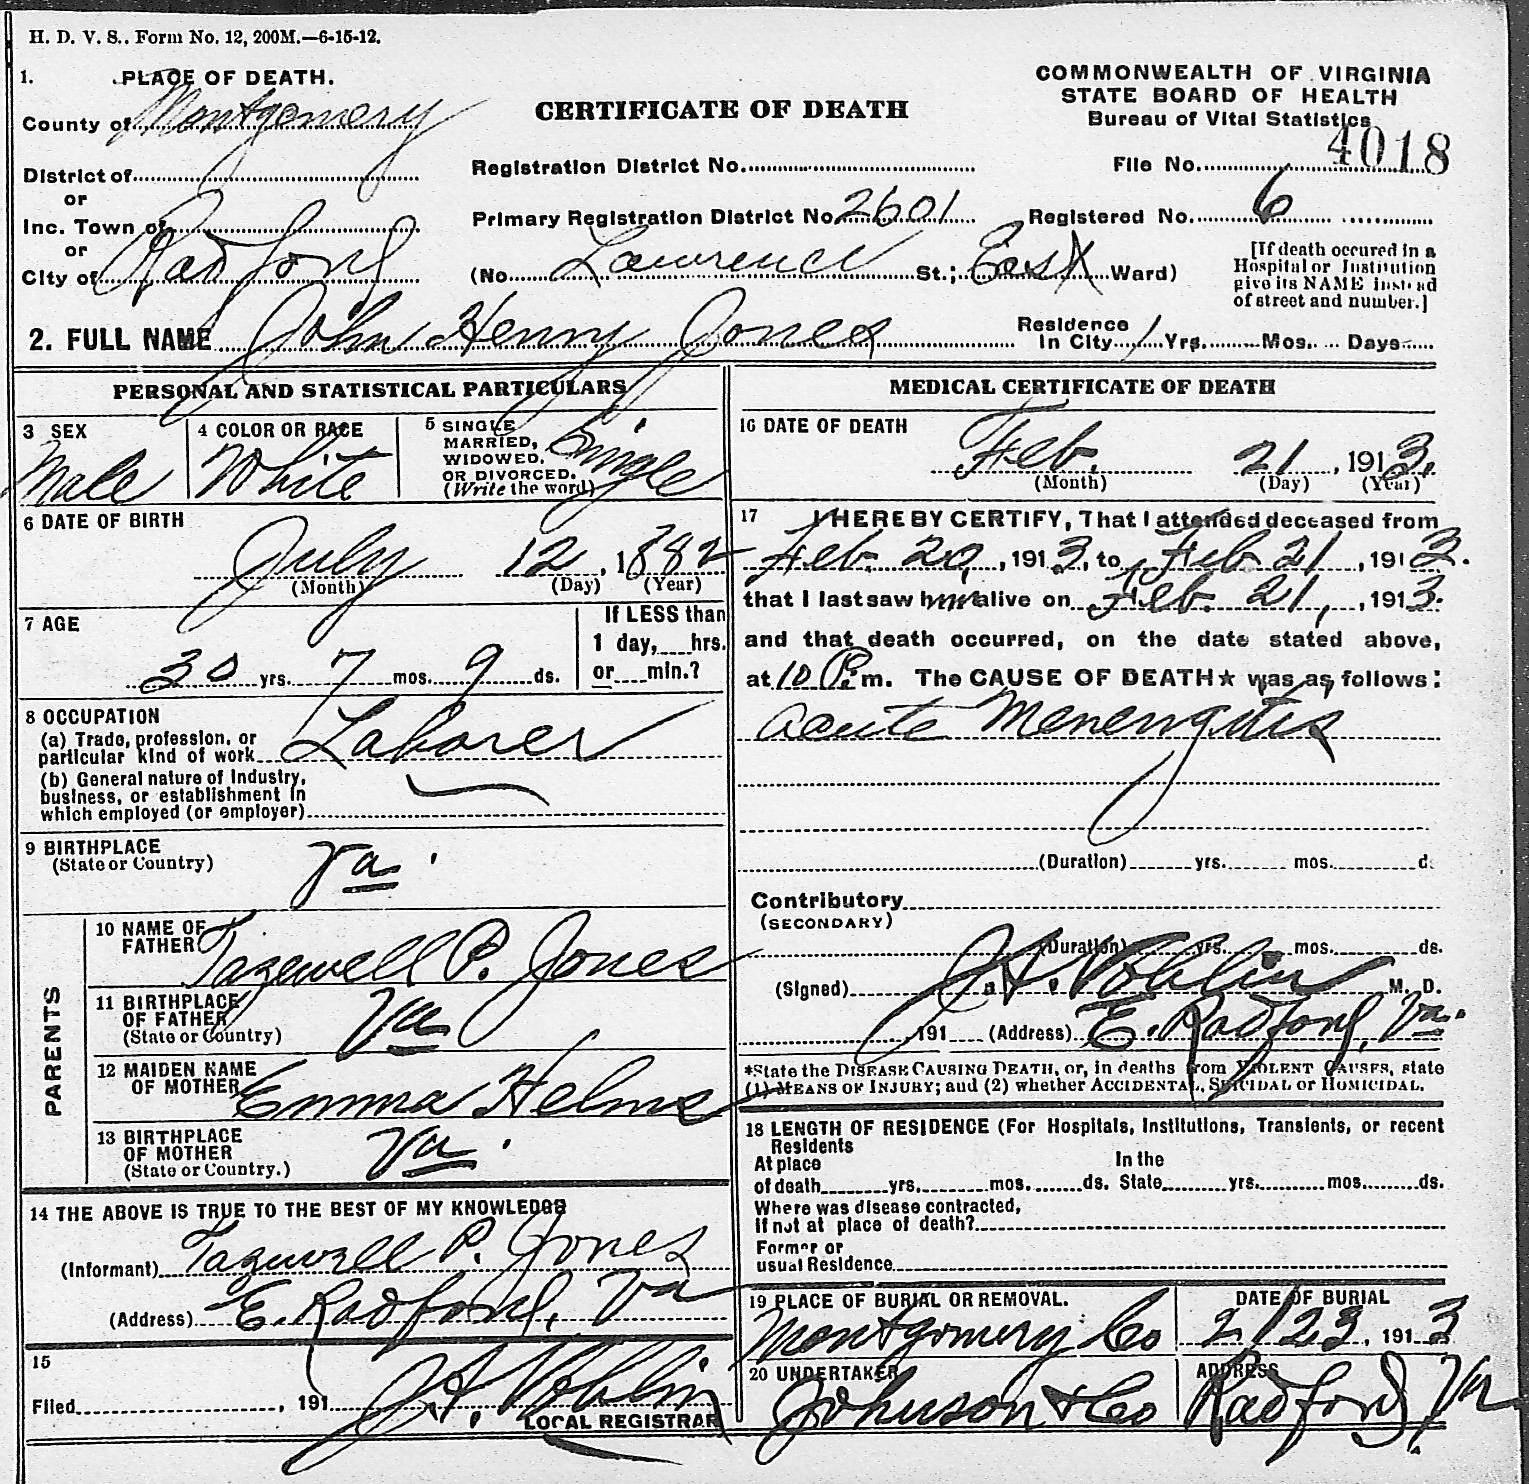 H. D. V. S.. Form No. 12, 200M.—6-15-12.
1. PLACE OF DEATH.
County of Montgomery
District of
or
Inc. Town of
or
City of Radford
CERTIFICATE OF DEATH
COMMONWEALTH OF VIRGINIA
STATE BOARD OF HEALTH
Bureau of Vital Statistics
Registration District No.
File No. 4018
Primary Registration District No. 2601
Registered No. 6
(No. Lawrence St.; East Ward)
[If death occured in a
Hospital or Institution
give its NAME instead
of street and number.]
2. FULL NAME John Henry Jones
Residence
In City 1 Yrs. Mos. Days
PERSONAL AND STATISTICAL PARTICULARS
3 SEX
Male
4 COLOR OR RACE
White
5 SINGLE
MARRIED,
WIDOWED,
OR DIVORCED.
(Write the word)
Single
6 DATE OF BIRTH
July 12, 1882
(Month) (Day) (Year)
7 AGE
30 yrs. 7 mos. 9 ds.
If LESS than
1 day, hrs.
or min.?
8 OCCUPATION
(a) Trade, profession, or
particular kind of work Laborer
(b) General nature of Industry,
business, or establishment in
which employed (or employer)
9 BIRTHPLACE
(State or Country)
Va.
PARENTS
10 NAME OF
FATHER
Tazewell P. Jones
11 BIRTHPLACE
OF FATHER
(State or Country)
Va
12 MAIDEN NAME
OF MOTHER
Emma Helms
13 BIRTHPLACE
OF MOTHER
(State or Country.)
Va.
14 THE ABOVE IS TRUE TO THE BEST OF MY KNOWLEDGE
(Informant) Tazewell P. Jones
(Address) E. Radford, Va
15
Filed , 191
LOCAL REGISTRAR
MEDICAL CERTIFICATE OF DEATH
16 DATE OF DEATH
Feb. 21, 1913.
(Month) (Day) (Year)
17 I HEREBY CERTIFY, That I attended deceased from
Feb. 20, 1913, to Feb 21, 1913.
that I last saw him alive on Feb. 21, 1913.
and that death occurred, on the date stated above,
at 10 P.m. The CAUSE OF DEATH★ was as follows:
acute Menengitis
(Duration) yrs. mos. d.
Contributory
(SECONDARY)
(Duration) yrs. mos. ds.
(Signed) M. D.
191 (Address) E. Radford, Va.
*State the DISEASE CAUSING DEATH, or, in deaths from VIOLENT CAUSES, state
(1) MEANS OF INJURY; and (2) whether ACCIDENTAL, SUICIDAL or HOMICIDAL.
18 LENGTH OF RESIDENCE (For Hospitals, Institutions, Transients, or recent
Residents
At place
of death yrs. mos. ds.
In the
State yrs. mos. ds.
Where was disease contracted,
If not at place of death?
Former or
usual Residence
19 PLACE OF BURIAL OR REMOVAL.
Montgomery Co
DATE OF BURIAL
2/23, 1913
20 UNDERTAKER
Johnson & Co
ADDRESS
Radford, Va